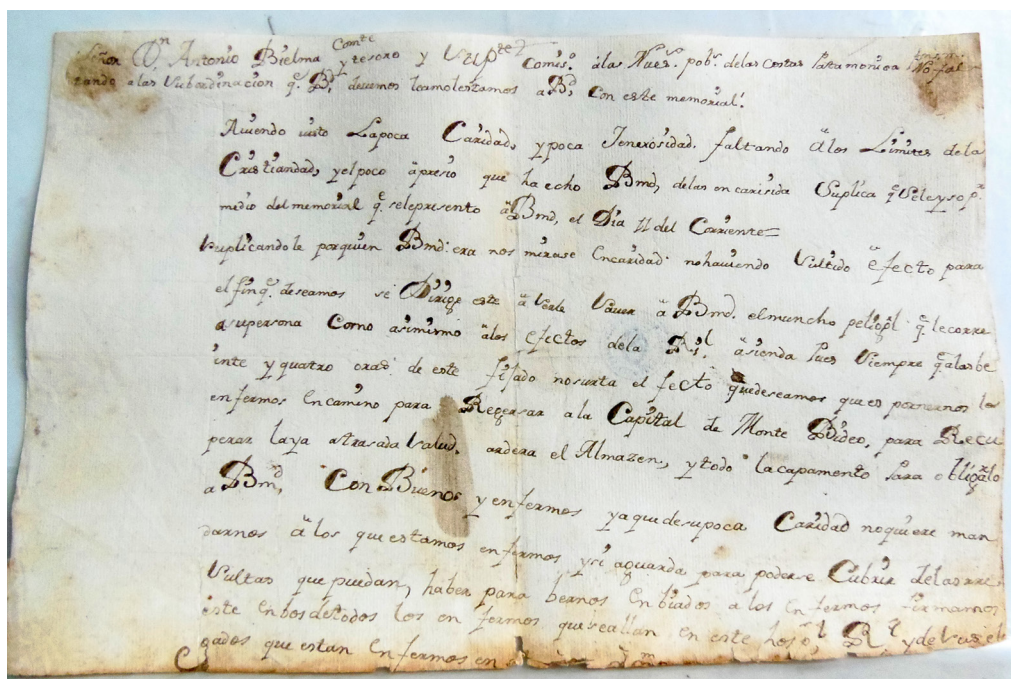 Señor Dn Antonio Bielma Comte y tesoro y Comis. á la Nues. pob. de las Costas Patamonica No fal
tando a las Subordinacion q. Bd. devemos leamolestamos a Bd, Con este memorial.
Aviendo visto Lapoca Caridad, y poca Jenerosidad. faltando â los Limites de la
Cristiandad, y el poco âpresio que ha echo Bmd, de las en carisida Suplica qe Seleyso pr
medio del memorial qe. se le presento âBmd, el Dia 11 del Corriente=
Suplicandole porquien Bmd. era nos mirase Encaridad. nohaviendo Surtido êfecto para
el fin qe. deseamos se Dirige este â Verle Saver â Bmd. el muncho peligrol. qe lecorre
asupersona Como asimismo âlos efectos dela Rl. asienda Pues Siempre qe alas be
inte y quatro oras. de este fijado nosurta el fecto quedeseamos que es ponernos los
enfermos Encamino para Regersar ala Capital de Monte Bideo, para Recu
perar laya atrasada Salud. ardera el Almazen, y todo lacapamento Para obligarlo
a Bmd, Con Buenos y enfermos yaquedesupoca Caridad noquiere man
darnos â los que estamos enfermos ysi aguarda para poderse Cubrir delasrre
Sultas que puedan, haber para bernos Enbiados a los Enfermos firmamos
este Enbosdetodos los en fermos quesealian en este hosl, Rl y de
gados que estan Enfermos en